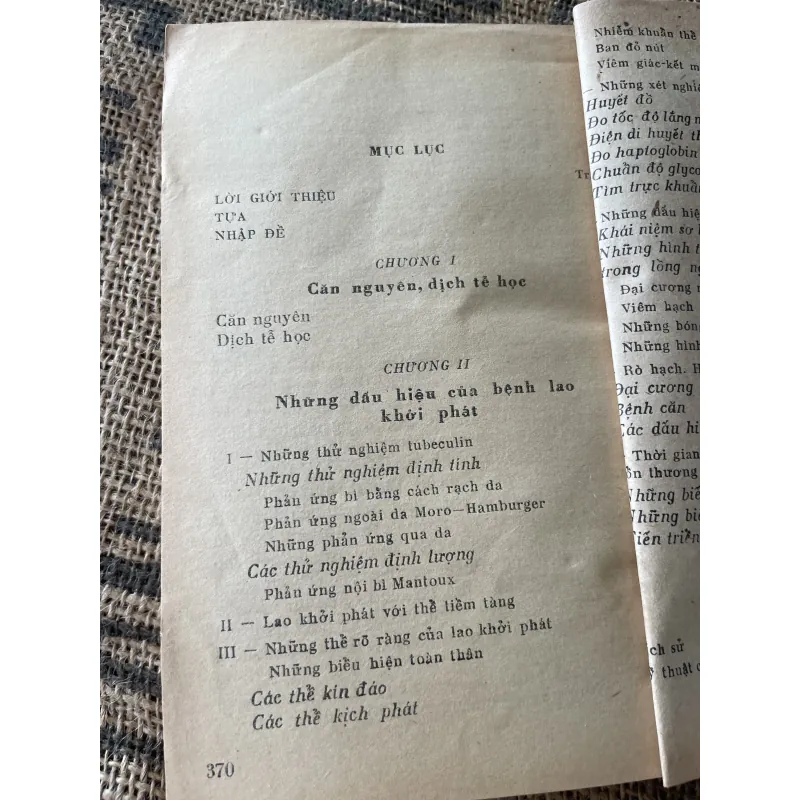 MỤC LỤC
Tr
LỜI GIỚI THIỆU
TỰA
NHẬP ĐỀ
CHƯƠNG I
Căn nguyên, dịch tễ học
Căn nguyên
Dịch tễ học
CHƯƠNG II
Những dấu hiệu của bệnh lao
khởi phát
I — Những thử nghiệm tubeculin
Những thử nghiệm định tính
Phản ứng bì bằng cách rạch da
Phản ứng ngoài da Moro—Hamburger
Những phản ứng qua da
Các thử nghiệm định lượng
Phản ứng nội bì Mantoux
II — Lao khởi phát với thể tiềm tàng
III — Những thể rõ ràng của lao khởi phát
Những biểu hiện toàn thân
Các thể kín đáo
Các thể kịch phát
370
Nhiễm khuẩn thể
Ban đỏ nút
Viêm giác-kết m
— Những xét nghiệ
Huyết đồ
Đo tốc độ lắng
Điện di huyết th
Đo haptoglobin
Chuẩn độ glyco
Tìm trực khuẩn
Những dấu hiệ
Khái niệm sơ
Những hình t
trong lồng ng
Đại cương
Viêm hạch
Những bón
Những hình
Rò hạch. H
Đại cương
Bệnh căn
Các dấu hi
Thời gian
ổn thương
Những biể
Những bi
Tiến triển
ch sử
thuật